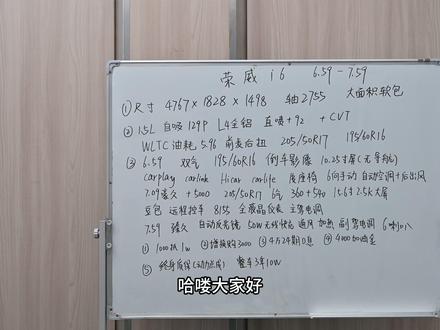 荣威 i6 6.59-7.59
①尺寸 4767×1828×1498 轴2755 大面积软包
②1.5L 自吸 129P L4全铝 直喷+92 +CVT
WLTC油耗 5.96 前麦后扭 205/50R17 195/60R16
③ 6.59 双气 195/60R16 倒车影像 10.25寸屏(无导航)
carplay carlink Hicar carlife 皮座椅 6向手动 自动空调+后出风
7.09 +5000 205/50R17 6气 360+540 15.6寸2.5k大屏
豆包 远程控车 8155 全液晶仪表 主驾电调
7.59 自动反光镜 50W无线快充 通风 加热 副驾电调 6喇叭
①1000抵1w ②增换购3000 ③4万24期0息 ④4000
⑤终身质保(动力总成) 整车3年10W
哈喽大家好